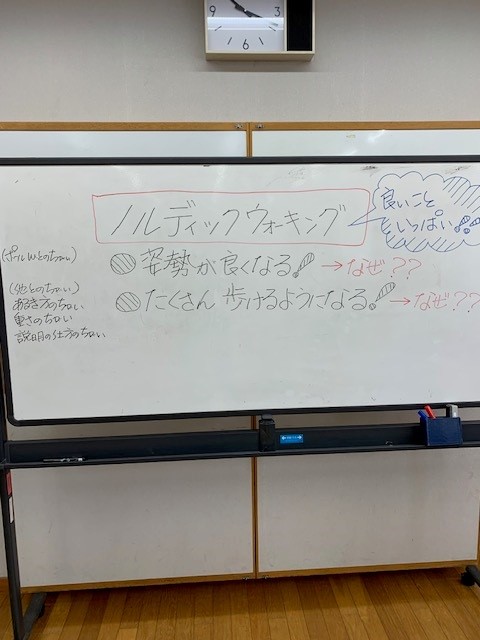 9
3
6
ノルディックウォーキング
良いこと
いっぱい!!
姿勢が良くなる! →なぜ??
たくさん歩けるようになる! →なぜ??
(ポールWとのちがい)
(他とのちがい)
あるき方のちがい
重さのちがい
説明の仕方のちがい